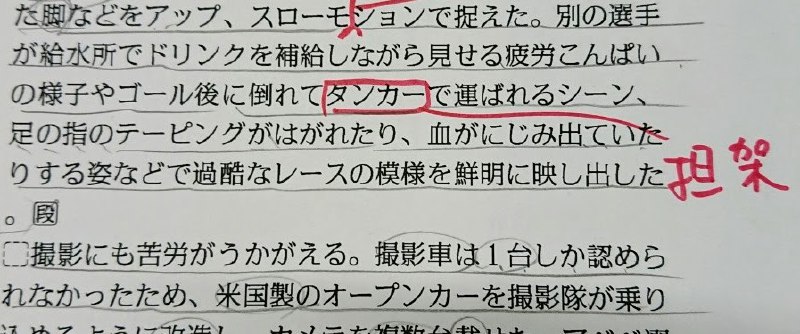 た脚などをアップ、スローモションで捉えた。別の選手
が給水所でドリンクを補給しながら見せる疲労こんぱい
の様子やゴール後に倒れてタンカーで運ばれるシーン、
足の指のテーピングがはがれたり、血がにじみ出ていた
りする姿などで過酷なレースの模様を鮮明に映し出した
担架
。段
撮影にも苦労がうかがえる。撮影車は1台しか認めら
れなかったため、米国製のオープンカーを撮影隊が乗り
込めるように改造し、カメラを複数台載せた。アベベ選